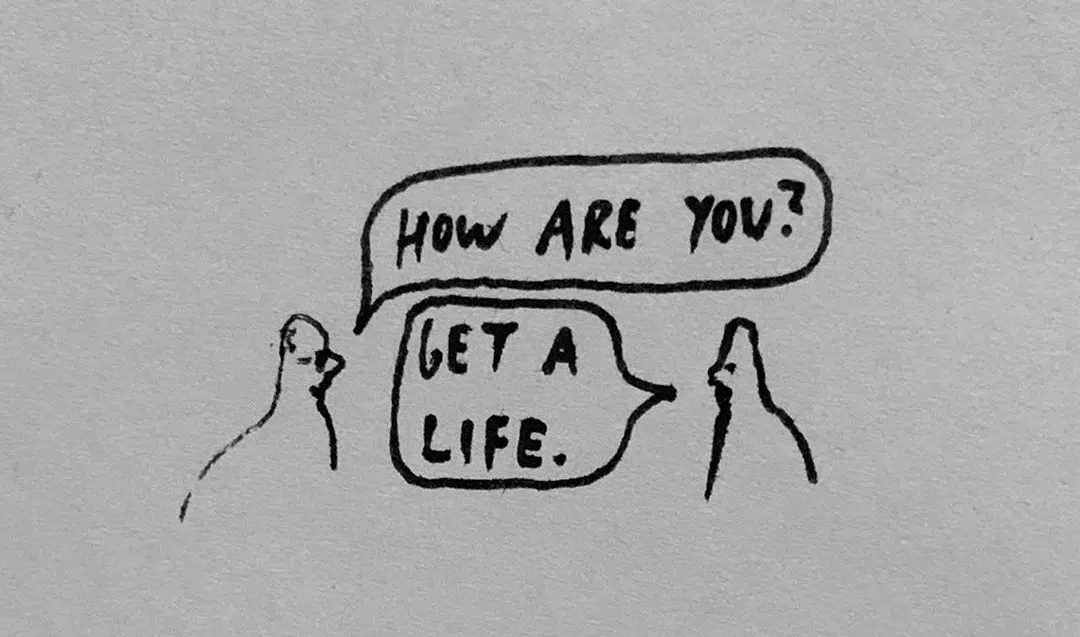 HOW ARE YOU?
GET A
LIFE.